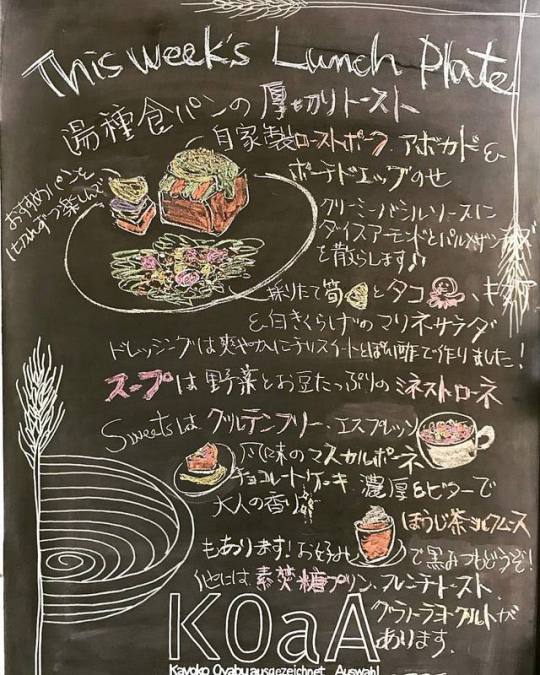 This week's Lunch Plate
湯種食パンの厚切りトースト
自家製ローストポーク、アボカド&
ポーチドエッグのせ
おすすめパンを
楽しんで
クリーミーバジルソースに
ダイスアーモンドとパルメザンチーズ
を散らします♪
採りたて筍とタコ、キヌア
&白きくらげのマリネサラダ
ドレッシングは爽やかにチリスイートとぽん酢で作りました!
スープは野菜とお豆たっぷりのミネストローネ
Sweetsは グルテンフリー・エスプレッソ
風味のマスカルポーネ
チョコレートケーキ 濃厚&ビターで
大人の香り
ほうじ茶ミルクムース
もあります!お好みで黒みつもどうぞ!
他には 素焚糖プリン、フレンチトースト、
グラノーラヨーグルトが
あります。
KOaA
Kayoko Oyabu ausgezeichnet Auswahl